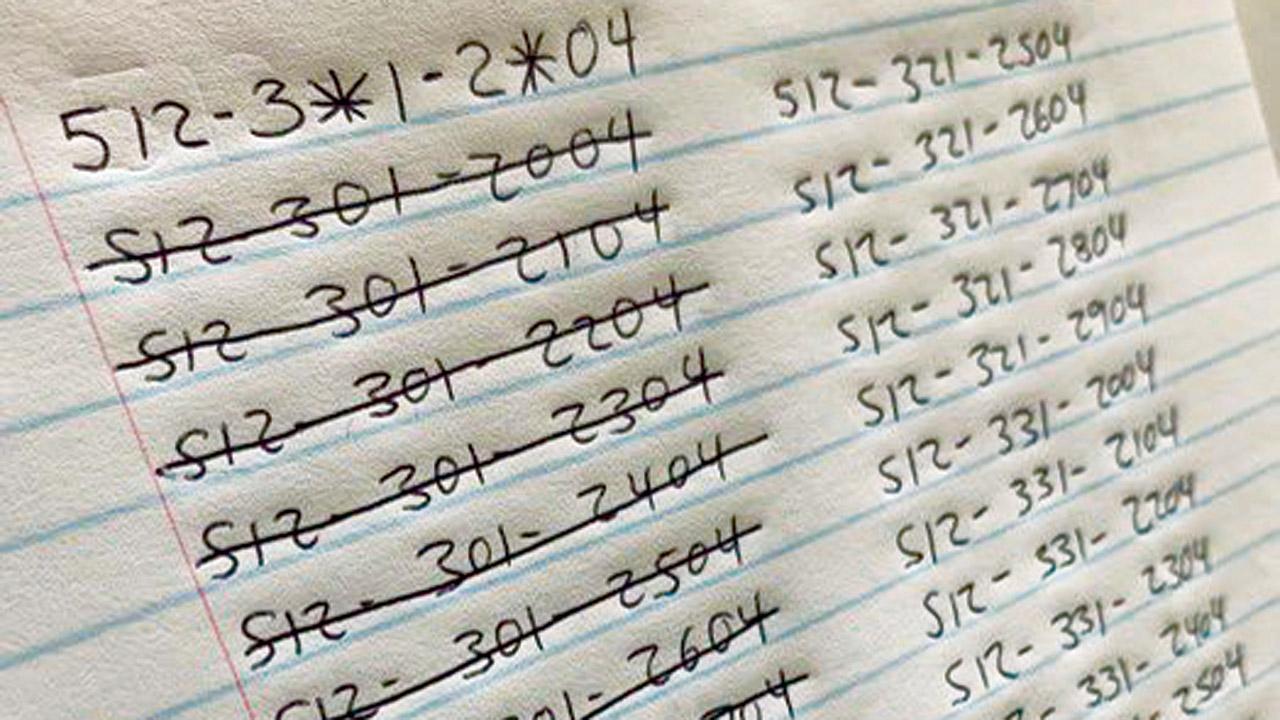 512-3*1-2*04
512-301-2004
512-301-2104
512-301-2204
512-301-2304
512-301-2404
512-301-2504
512-301-2604
512-321-2504
512-321-2604
512-321-2704
512-321-2804
512-321-2904
512-331-2004
512-331-2104
512-331-2204
512-331-2304
331-2404
2504